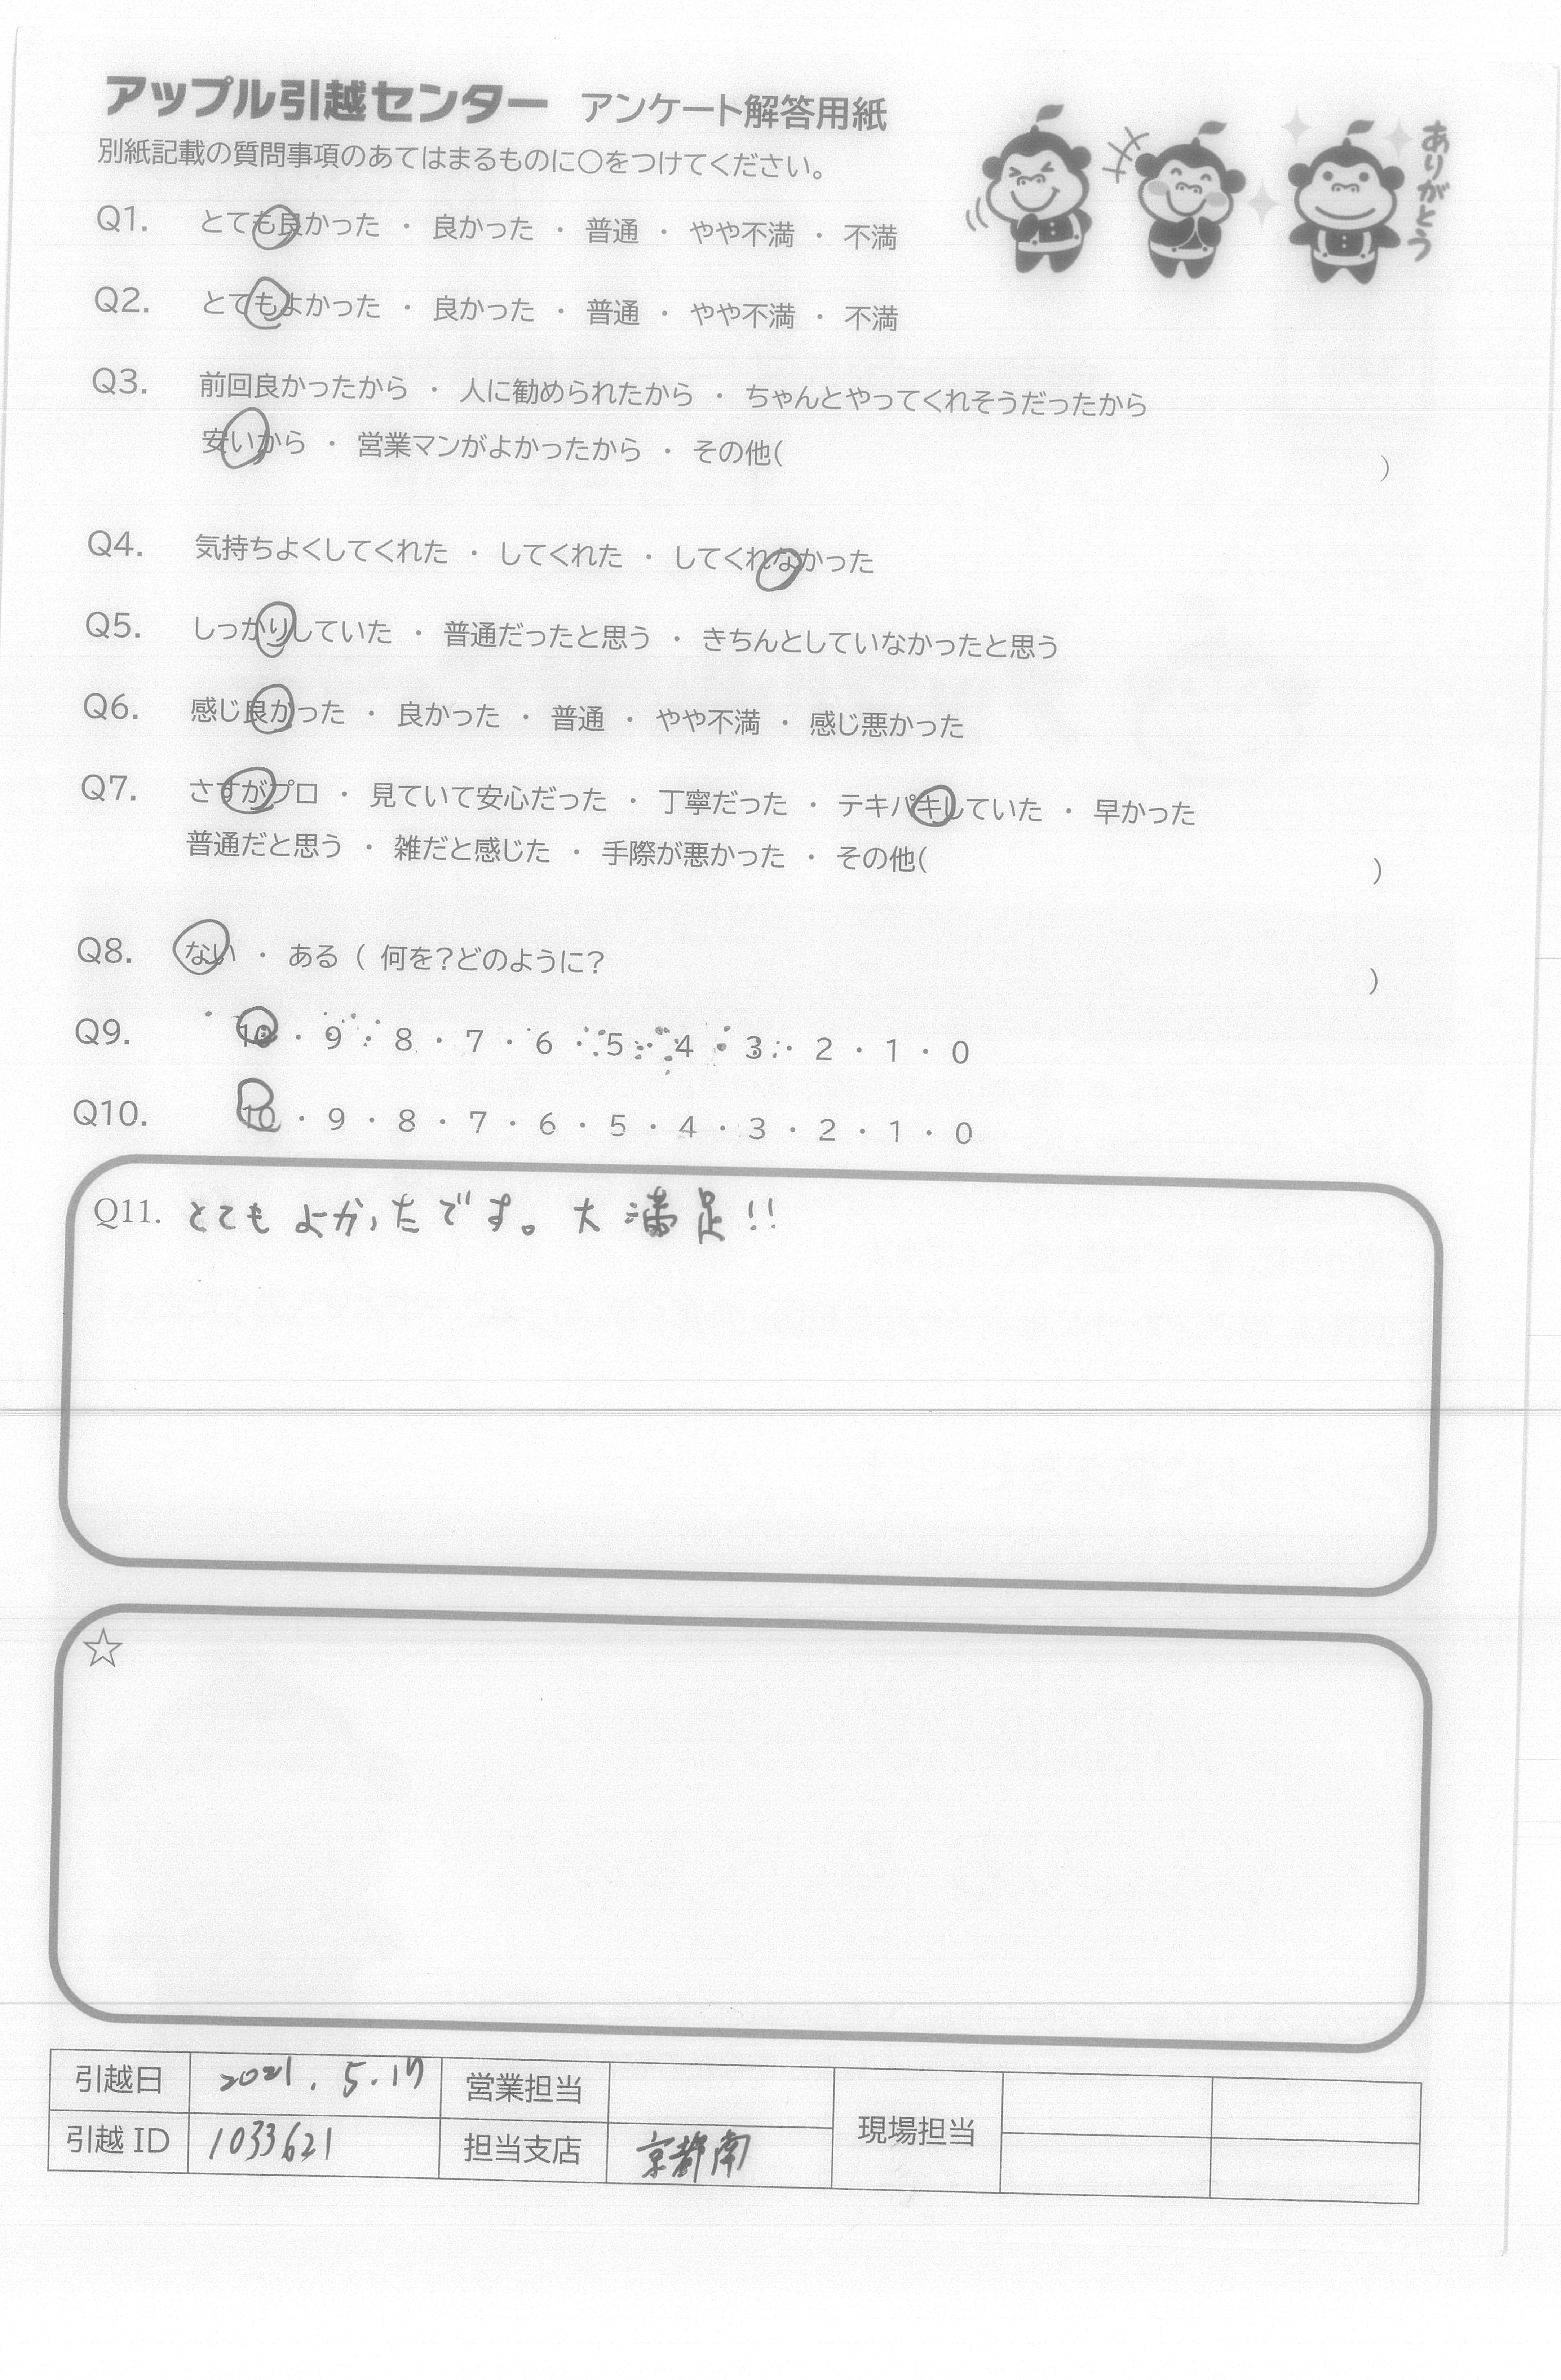 アップル引越センター アンケート解答用紙
ありがとう
別紙記載の質問事項のあてはまるものに○をつけてください。
Q1. とても良かった ・ 良かった ・ 普通 ・ やや不満 ・ 不満
Q2. とてもよかった ・ 良かった ・ 普通 ・ やや不満 ・ 不満
Q3. 前回良かったから ・ 人に勧められたから ・ ちゃんとやってくれそうだったから
安いから ・ 営業マンがよかったから ・ その他( )
Q4. 気持ちよくしてくれた ・ してくれた ・ してくれなかった
Q5. しっかりしていた ・ 普通だったと思う ・ きちんとしていなかったと思う
Q6. 感じ良かった ・ 良かった ・ 普通 ・ やや不満 ・ 感じ悪かった
Q7. さすがプロ ・ 見ていて安心だった ・ 丁寧だった ・ テキパキしていた ・ 早かった
普通だと思う ・ 雑だと感じた ・ 手際が悪かった ・ その他( )
Q8. ない ・ ある ( 何を?どのように? )
Q9. 10 ・ 9 ・ 8 ・ 7 ・ 6 ・ 5 ・ 4 ・ 3 ・ 2 ・ 1 ・ 0
Q10. 10 ・ 9 ・ 8 ・ 7 ・ 6 ・ 5 ・ 4 ・ 3 ・ 2 ・ 1 ・ 0
Q11. とてもよかったです。大満足!!
☆
引越日 2021.5.17 営業担当
現場担当
引越ID 1033621 担当支店 京都南